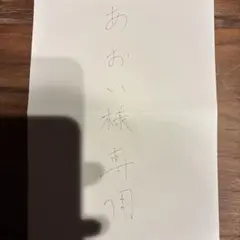 あおい様専用